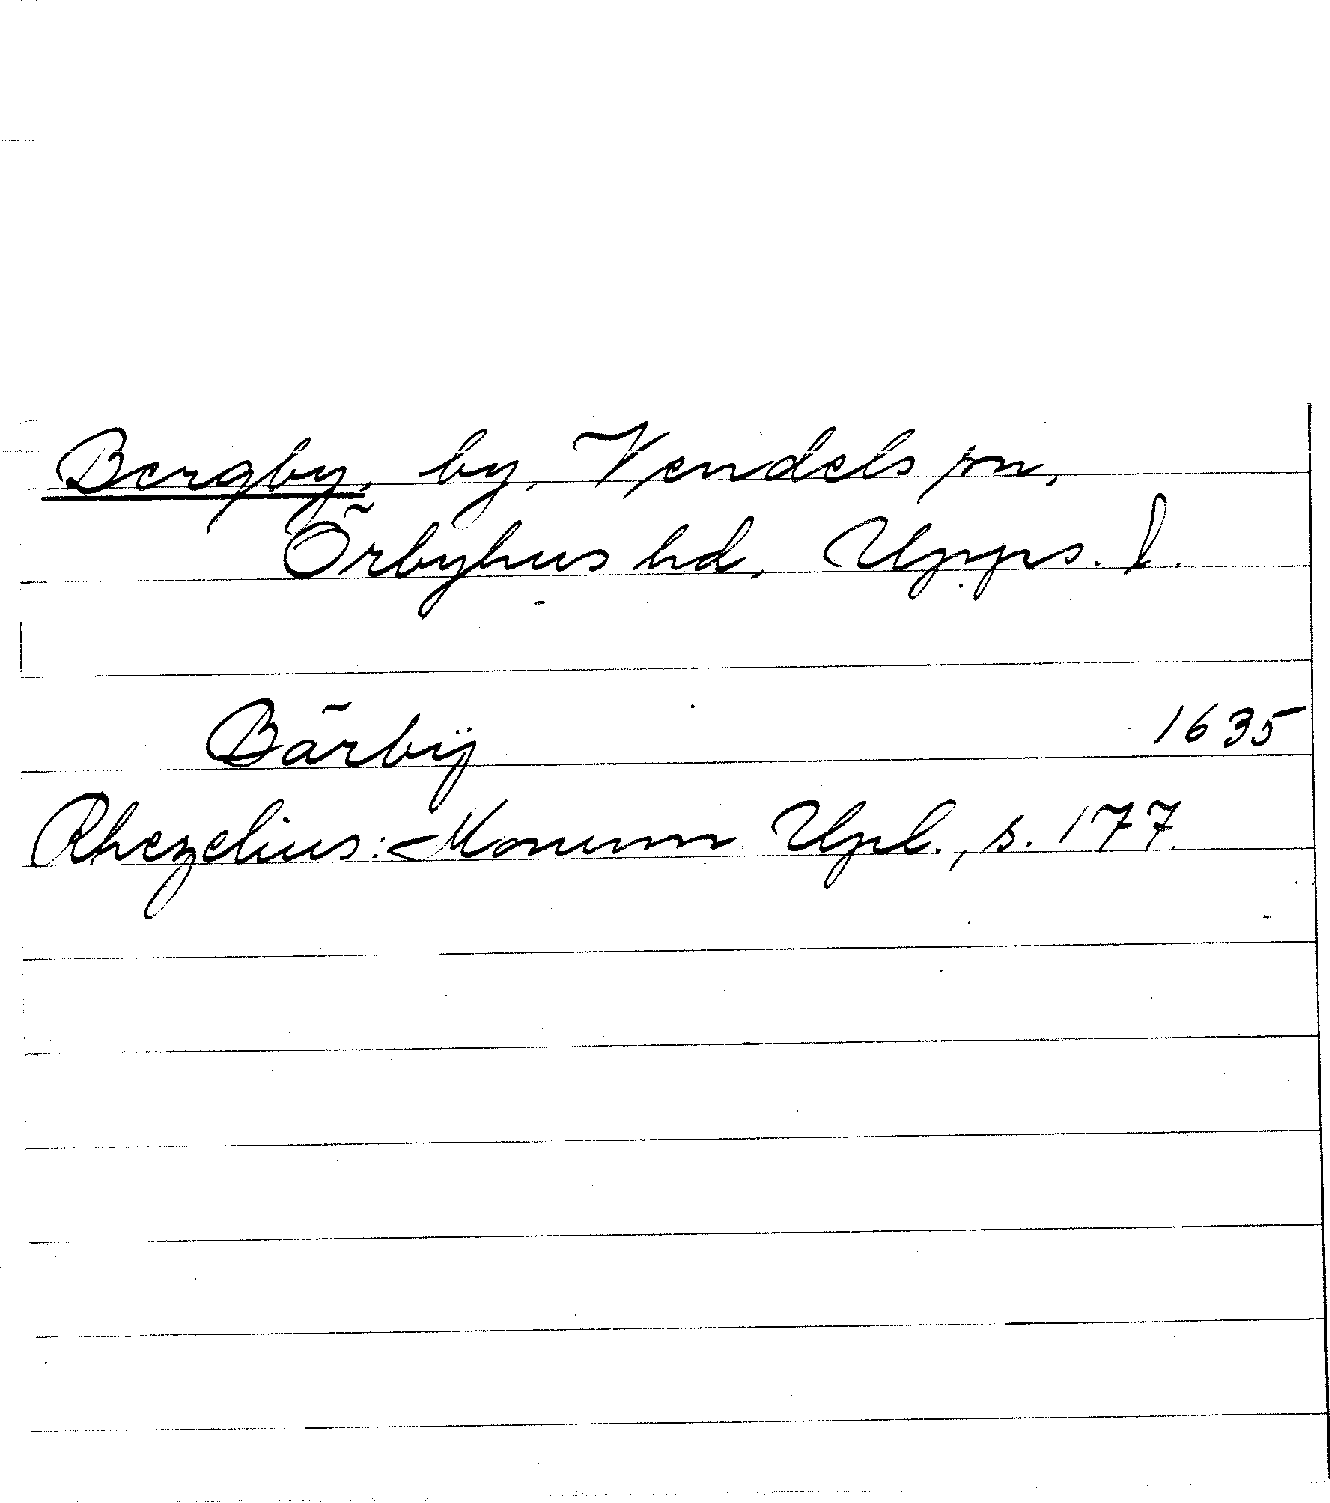 Bergby, by, Vendels sn,
Örbyhus hd, Upps. l.
Bärbÿ 1635
Rhezelius: Monum Upl., s. 177.